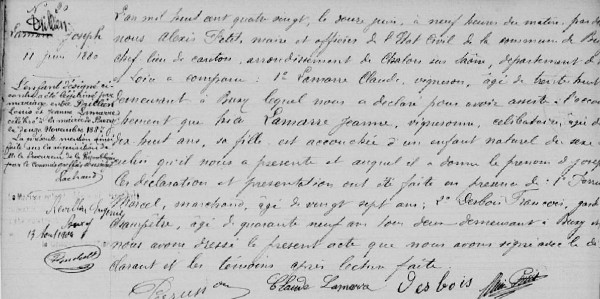 Lamarre Joseph
11 juin 1880
L'enfant désigné ci-
contre a été légitimé par
mariage
Louis & Jeanne Lamarre
célébré à la mairie de
le douze Novembre 188
La présente mention
faite sur la réquisition de
M. le Procureur de la République
L'an mil huit cent quatre vingt, le douze juin, à neuf heures du matin, par de
nous Alexis Petit, maire et officier de l'Etat Civil de la commune de Bu
chef lieu de canton, arrondissement de Chalon sur Saône, département de
Loire a comparu : 1° Lamarre Claude, vigneron, âgé de trente huit
demeurant à Buxy lequel nous a déclaré pour avoir assisté à l'accou
chement que hier Lamarre Jeanne, vigneronne, célibataire, âgée de
dix huit ans, sa fille, est accouchée d'un enfant naturel de sexe
masculin qu'il nous a présenté et auquel il a donné le prénom de Joseph
Ces déclaration et présentation ont été faite en présence de 1°
Marcel, marchand, âgé de vingt sept ans ; 2° Desbois François, garde
champêtre, âgé de quarante neuf ans tous deux demeurant à Buxy et
nous avons dressé le présent acte que nous avons signé avec le dé
clarant et les témoins après lecture faite.
Claude Lamarre Desbois